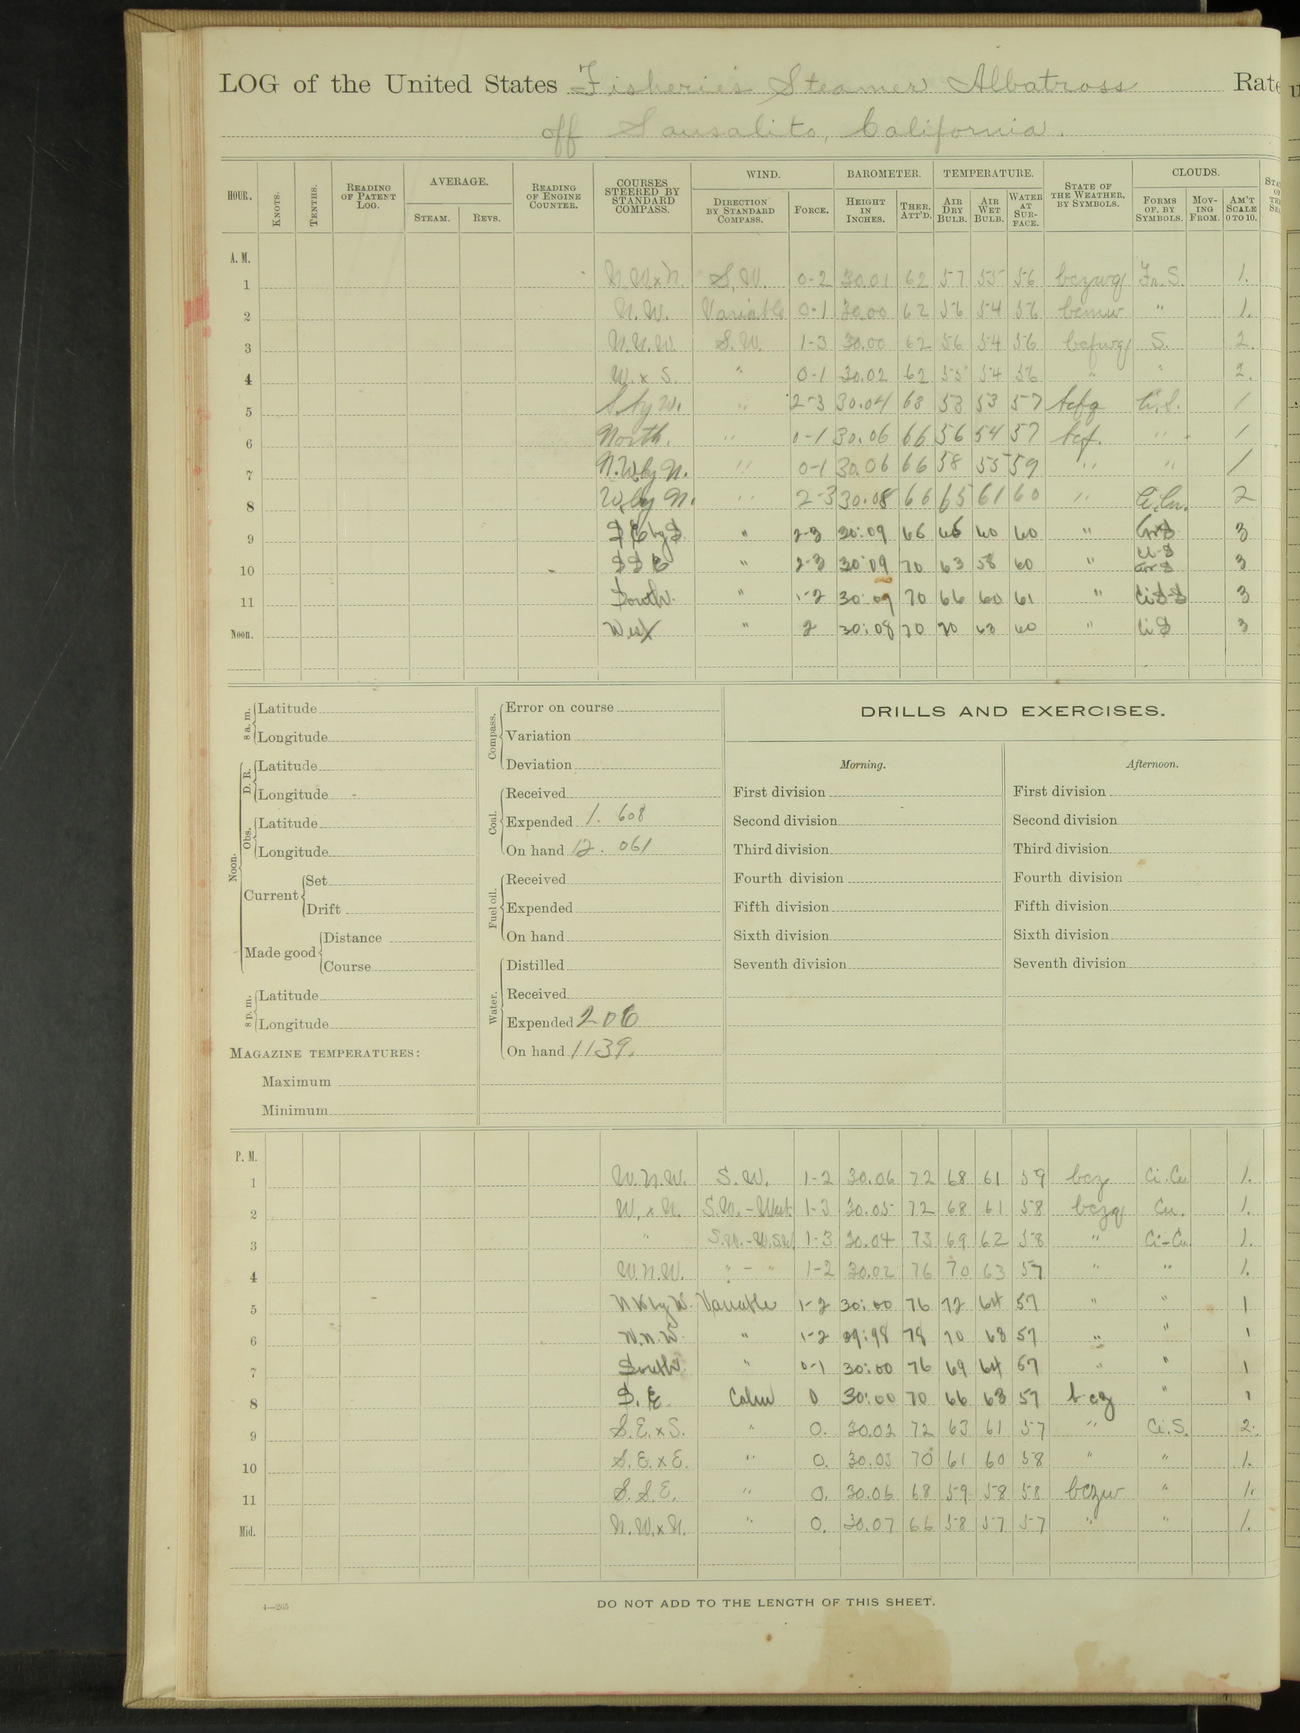 LOG of the United States Fisheries Steamer Albatross Rate
off Sausalito, California.
HOUR. KNOTS. TENTHS. READING OF PATENT LOG. AVERAGE. STEAM. REVS. READING OF ENGINE COUNTER. COURSES STEERED BY STANDARD COMPASS. WIND. DIRECTION BY STANDARD COMPASS. FORCE. BAROMETER. HEIGHT IN INCHES. THER. ATT'D. TEMPERATURE. AIR DRY BULB. AIR WET BULB. WATER AT SURFACE. STATE OF THE WEATHER, BY SYMBOLS. CLOUDS. FORMS OF, BY SYMBOLS. MOVING FROM. AM'T SCALE 0 TO 10.
A. M.
1 N.W.xN. S.W. 0-2 30.01 62 57 55 56 bczwq Fr.S. 1.
2 N.W. Variable 0-1 30.00 62 56 54 56 bcmw " 1.
3 N.N.W. S.W. 1-3 30.00 62 56 54 56 bcfwq S. 2.
4 W.xS. " 0-1 30.02 62 55 54 56 " " 2.
5 S. by W. " 2-3 30.04 68 53 53 57 bcfq Ci.S. 1
6 North. " 0-1 30.06 66 56 54 57 bcf. " 1
7 N.W. by N. " 0-1 30.06 66 58 55 59 " " 1
8 W. by N. " 2-3 30.08 66 65 61 60 " Ci.Cu. 2
9 SE by S " 2-3 30:09 66 60 60 " 3
10 SSE " 2-3 30:09 70 63 58 60 " Ci-S 3
11 South. " 1-2 30:09 70 66 60 61 " 3
Noon. West " 2 30:08 70 70 63 60 " Ci S 3
8 a. m. Latitude
Longitude
Noon. D. R. Latitude
Longitude
Obs. Latitude
Longitude
Current Set
Drift
Made good Distance
Course
8 p. m. Latitude
Longitude
MAGAZINE TEMPERATURES:
Maximum
Minimum
Compass. Error on course
Variation
Deviation
Coal. Received
Expended 1. 608
On hand 12. 061
Fuel oil. Received
Expended
On hand
Water. Distilled
Received
Expended 206
On hand 1139.
DRILLS AND EXERCISES.
Morning.
First division
Second division
Third division
Fourth division
Fifth division
Sixth division
Seventh division
Afternoon.
First division
Second division
Third division
Fourth division
Fifth division
Sixth division
Seventh division
P. M.
1 W.N.W. S.W. 1-2 30.06 72 68 61 59 bcz Ci.Cu 1.
2 W.xN. S.W.-West 1-3 30.05 72 68 61 58 bczq Cu. 1.
3 " S.W.-W.SW 1-3 30.04 73 69 62 58 " Ci-Cu 1.
4 W.N.W. " - " 1-2 30.02 76 70 63 57 " " 1.
5 NW by W. Variable 1-2 30:00 76 72 64 57 " " 1
6 W.N.W " 1-2 29:98 78 70 63 57 " " 1
7 South. " 0-1 30:00 76 69 64 57 " " 1
8 S.E. Calm 0 30:00 70 66 63 57 bcz " 1
9 S.E.xS. " 0. 30.02 72 63 61 57 " Ci.S. 2.
10 S.E.xE. " 0. 30.05 70 61 60 58 " " 1.
11 S.S.E. " 0. 30.06 68 59 58 58 bczw " 1.
Mid. N.W.xN. " 0. 30.07 66 58 57 57 " " 1.
4—265
DO NOT ADD TO THE LENGTH OF THIS SHEET.